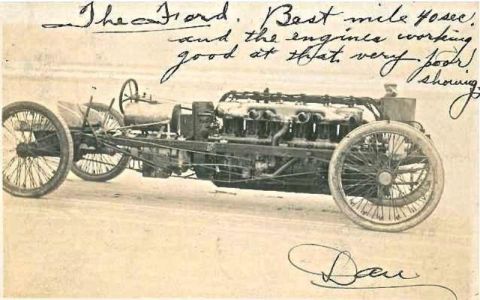 The Ford. Best mile 40 sec.
and the engines working
good at that. very poor
showing.
Dan